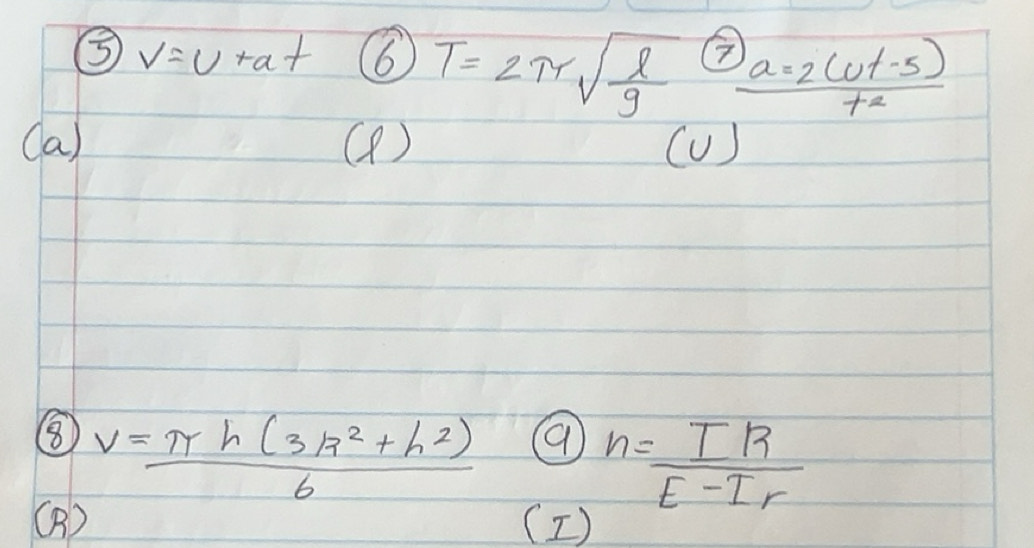 ⑤ v=u+at ⑥ T= 2π√(l/g) ⑦ a=2(ut-s)/t²
(a) (l) (u)
⑧ v=πh(3R²+h²)/6 ⑨ n=IR/(E-Ir)
(R) (I)